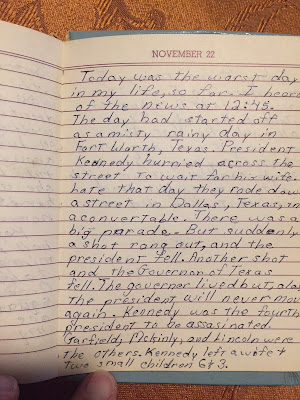 NOVEMBER 22
Today was the worst day
in my life, so far. I heard
of the news at 12:45.
The day had started off
as a misty rainy day in
Fort Worth, Texas. President
Kennedy hurried across the
street to wait for his wife.
Late that day they rode down
a street in Dallas, Texas, in
a convertable. There was a
big parade. But suddenly
a shot rang out, and the
president fell. Another shot
and the Governor of Texas
fell. The governor lived but, alas
the president will never move
again. Kennedy was the fourth
president to be assasinated.
Garfield, Mckinly, and Lincoln were
the others. Kennedy left a wife &
two small children 6 & 3.